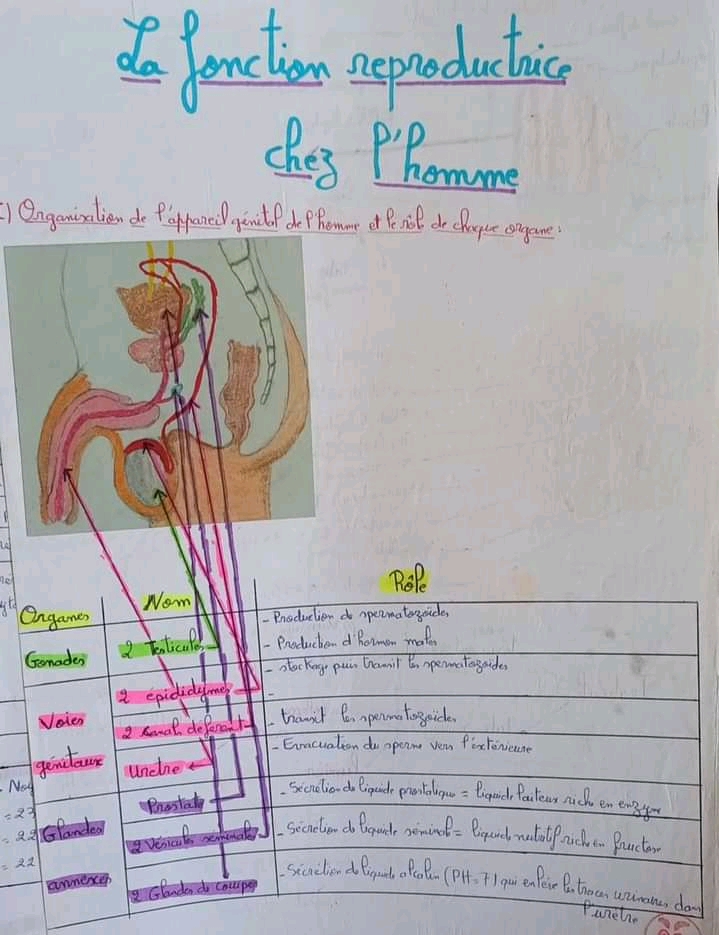 La fonction reproductrice
chez l'homme
I) Organisation de l'appareil génital de l'homme et le rôle de chaque organe :
Organes Nom Rôle
Gonades 2 Testicules - Production de spermatozoïdes
- Production d'hormon males
2 epididymes - stockage puis transit les spermatozoïdes
-
Voies 2 canal deferant - transit les spermatozoïdes
génitaux Uretre - Evacuation du sperme vers l'extérieure
Prostate - Sécrétion de liquide prostatique = liquide laiteux riche en enzyme
Glandes 2 Vésicules seminales - Sécrétion de liquide séminal = liquide nutritif riche en fructose
annexes 2 Glandes de cowper - Sécrétion de liquide alcalin (PH=7) qui enlève les traces urinaires dans
l'urètre
Noy
= 23
= 22
= 22